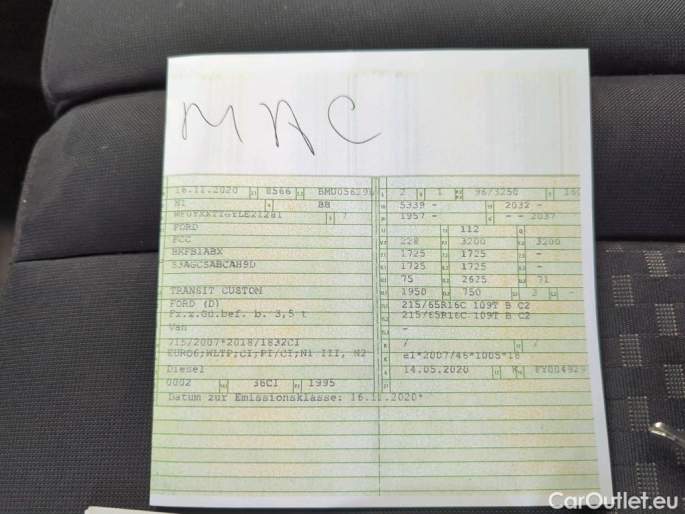 MAC
16.11.2020 8566 BMU05629
2 1 96/3250
N1 BB
5339 - 2032 -
1957 - - - 2037
FORD
112
FCC
228 3200 3200
BKFB1ABX
1725 1725 -
S3AGCSABCAH9D
1725 1725 -
75 2625 71
TRANSIT CUSTOM
1950 750 2 -
FORD (D)
215/65R16C 109T B C2
Fz.z.Gü.bef. b. 3,5 t
215/65R16C 109T B C2
Van
-
715/2007*2018/1832CI
/ /
EURO6;WLTP;CI;PI/CI;N1 III, N2
e1*2007/46*1005*18
Diesel
14.05.2020 K
0002 36CI 1995
Datum zur Emissionsklasse: 16.11.2020*
CarOutlet.eu